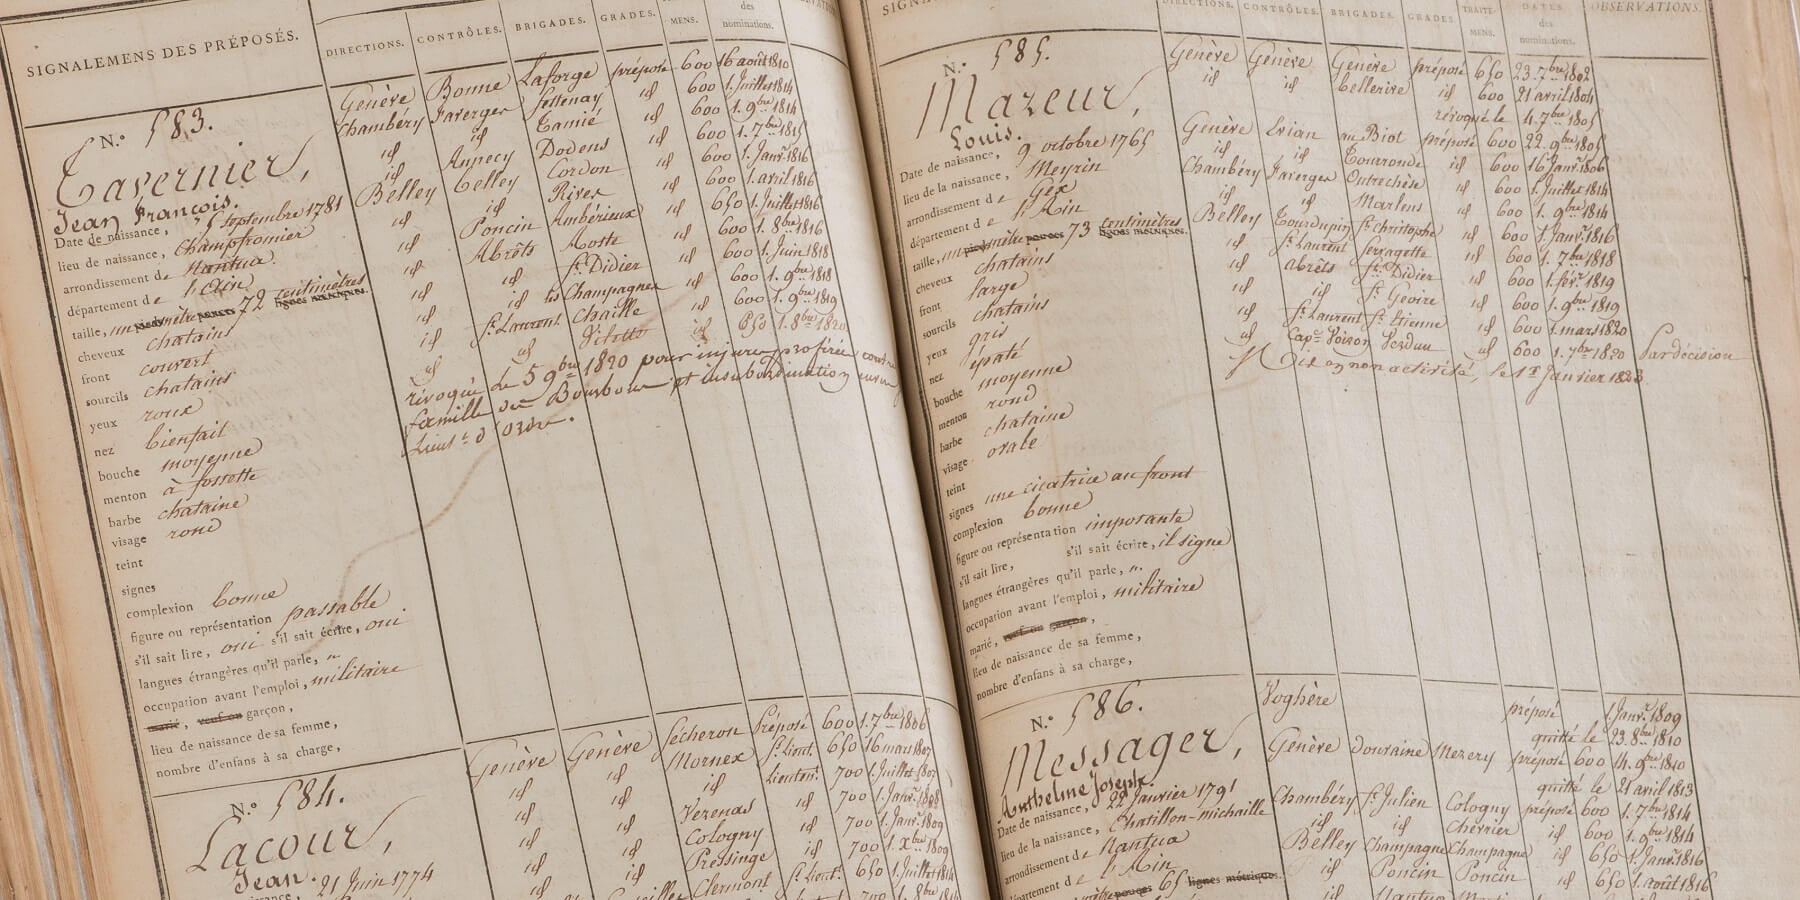 SIGNALEMENS DES PRÉPOSÉS.
DIRECTIONS. CONTRÔLES. BRIGADES. GRADES. MENS. des nominations.
N.º 583.
Tavernier,
Jean François.
Date de naissance, 25 septembre 1781
lieu de naissance, Champfromier
arrondissement de Nantua
département de l'ain
taille, un pieds mètre pouces 72 centimètres lignes métriques.
cheveux chatains
front couvert
sourcils chatains
yeux roux
nez bienfait
bouche moyenne
menton à fossette
barbe chataine
visage rond
teint
signes
complexion bonne
figure ou représentation passable
s'il sait lire, oui s'il sait écrire, oui
langues étrangères qu'il parle, "
occupation avant l'emploi, militaire
marié, veuf ou garçon,
lieu de naissance de sa femme,
nombre d'enfans à sa charge,
Genève Bonne Laforge préposé 600 16 août 1810
Chambéry Faverger Settenay id 600 1. Juillet 1814
id id Tamié id 600 1. 9bre 1814
id Annecy Dodens id 600 1. 7bre 1815
Belley Celley Cordon id 600 1. Janvr 1816
id id Rives id 600 1. avril 1816
id Poncin Ambérieux id 650 1. Juillet 1816
id Abrêts Aoste id 600 1. 8bre 1816
id id St. Didier id 600 1. Juin 1818
id id les Champagnes id 600 1. 9bre 1818
id St. Laurent Chaille id 600 1. 9bre 1819
id id id 650 1. 8bre 1820
révoqué le 5 9bre 1820 pour injure proférée contre
famille des Bourbons et insubordination envers
Lieut. d'ordre.
N.º 584.
Lacour,
Jean.
21 Juin 1774
Genève Genève Sécheron Préposé 600 1. 7bre 1806
id id Mornex St. Lieut. 650 16 mars 1807
id id id Lieuten. 700 1. Juillet 1807
id id Verenas id 700 1. Janvr. 1808
id id Cologny id 700 1. Janvr. 1809
id id Pressinge id 700 1. Xbre 1809
Clermont St. Lieut. 650 1. Juillet 1814
DIRECTIONS. CONTRÔLES. BRIGADES. GRADES. TRAITE-MENS. DATES des nominations. OBSERVATIONS.
N.º 585.
Mazeur,
Louis.
Date de naissance, 9 octobre 1765
lieu de la naissance, Meyrin
arrondissement de Gex
département de l'Ain
taille, un pieds mètre pouces 73 centimètres lignes métriques.
cheveux chatains
front large
sourcils chatains
yeux gris
nez épaté
bouche moyenne
menton rond
barbe chataine
visage ovale
teint
signes une cicatrice au front
complexion bonne
figure ou représentation imposante
s'il sait lire, s'il sait écrire, il signe
langues étrangères qu'il parle, "
occupation avant l'emploi, militaire
marié, veuf ou garçon,
lieu de naissance de sa femme,
nombre d'enfans à sa charge,
Genève Genève Genève préposé 650 23 7bre 1802
id id Bellerive id 600 21 avril 1804
révoqué le 4 7bre 1805
Genève Evian au Biot préposé 600 22 9bre 1805
id id Tourronde id 600 16 Janvr. 1806
Chambéry Faverger Outrechèse id 600 1. Juillet 1814
id id Marlens id 600 1. 9bre 1814
Belley Tourdupin St. Christophe id 600 1. Janvr. 1816
id St. Laurent id 600 1. 7bre 1818
id abrêts St. Didier id 600 1. févr. 1819
id id St. Geoire id 600 1. 9bre 1819
id St. Laurent St. Etienne id 600 1. mars 1820
id Voiron id 600 1. 7bre 1820 Par décision
Mis en non activité, le 1er Janvier 1823.
N.º 586.
Messager,
Anthelme Joseph.
Date de naissance, 22 Janvier 1791
lieu de la naissance, Chatillon-michaille
arrondissement de Nantua
département de l'Ain
mètre pouces 65 lignes métriques.
Voghère préposé 1. Janvr. 1809
quitté le 23 8bre 1810
Genève Douvaine Mezery préposé 600 14 9bre 1810
quitté le 21 avril 1813
Chambéry St. Julien Cologny préposé 600 1. 7bre 1814
id id Chevrier id 600 1. 9bre 1814
Belley Champagne Champagne id 600 1. Janvr. 1816
id Poncin Poncin id 650 1. août 1816
id Nantua